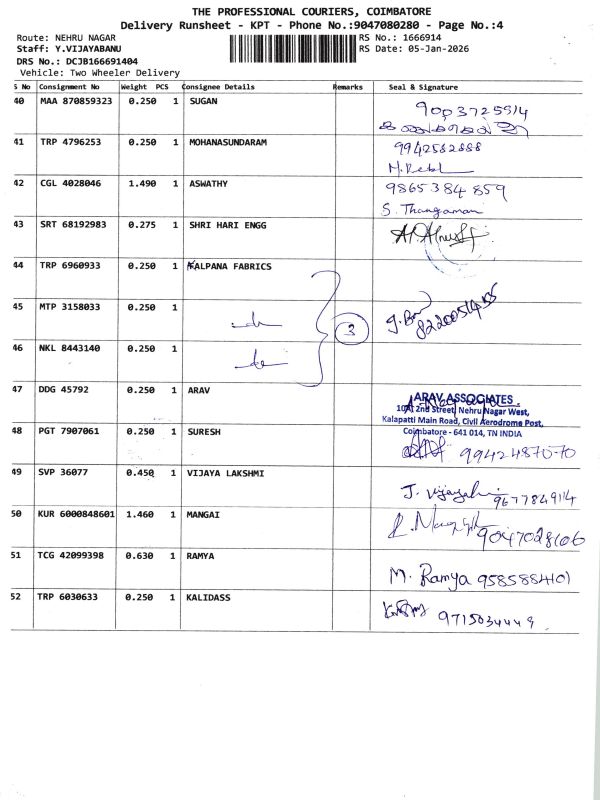 THE PROFESSIONAL COURIERS, COIMBATORE
Delivery Runsheet - KPT - Phone No.:9047080280 - Page No.:4
Route: NEHRU NAGAR RS No.: 1666914
Staff: Y.VIJAYABANU RS Date: 05-Jan-2026
DRS No.: DCJB166691404
Vehicle: Two Wheeler Delivery
S No Consignment No Weight PCS Consignee Details Remarks Seal & Signature
40 MAA 870859323 0.250 1 SUGAN
41 TRP 4796253 0.250 1 MOHANASUNDARAM
42 CGL 4028046 1.490 1 ASWATHY 9865384859
S. Thangamani
43 SRT 68192983 0.275 1 SHRI HARI ENGG
44 TRP 6960933 0.250 1 KALPANA FABRICS
45 MTP 3158033 0.250 1
3
46 NKL 8443140 0.250 1
47 DDG 45792 0.250 1 ARAV
ARAV ASSOCIATES,
2nd Street, Nehru Nagar West,
Kalapatti Main Road, Civil Aerodrome Post,
Coimbatore - 641 014, TN INDIA
48 PGT 7907061 0.250 1 SURESH 9942487070
49 SVP 36077 0.450 1 VIJAYA LAKSHMI
J. 9677849114
50 KUR 6000848601 1.460 1 MANGAI
9047028606
51 TCG 42099398 0.630 1 RAMYA
M. Ramya 9585884101
52 TRP 6030633 0.250 1 KALIDASS
9715034449